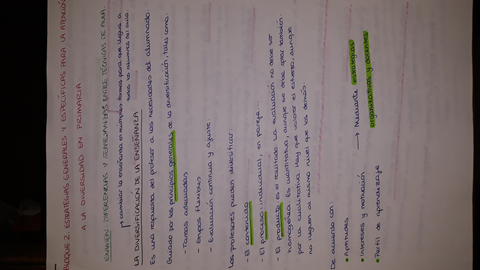 BLOQUE 2. ESTRATEGIAS GENERALES Y ESPECÍFICAS PARA LA ATENCIÓN
A LA DIVERSIDAD EN PRIMARIA
EXAMEN DIFERENCIAS Y SEMEJANZAS ENTRE TÉCNICAS DE AULA
cambiar la enseñanza en múltiples formas para que llegue a
todos los alumnos del aula.
LA DIVERSIFICACIÓN DE LA ENSEÑANZA
Es una respuesta del profesor a las necesidades del alumnado.
Guiado por los principios generales de la diversificación, tales como:
- Tareas adecuadas
- Grupos flexibles
- Evaluación continua y ajuste
Los profesores pueden diversificar:
- El contenido
- El proceso: individual, en pareja...
- El producto: es el resultado. La evaluación no debe ser
homogénea. Es cuantitativa, aunque se debe optar también
por la cualitativa. Hay que valorar el esfuerzo, aunque
no lleguen al mismo nivel que los demás.
De acuerdo con:
• Aptitudes
• Intereses y motivación → Mediante estrategias
• Perfil de aprendizaje organizativas y docentes